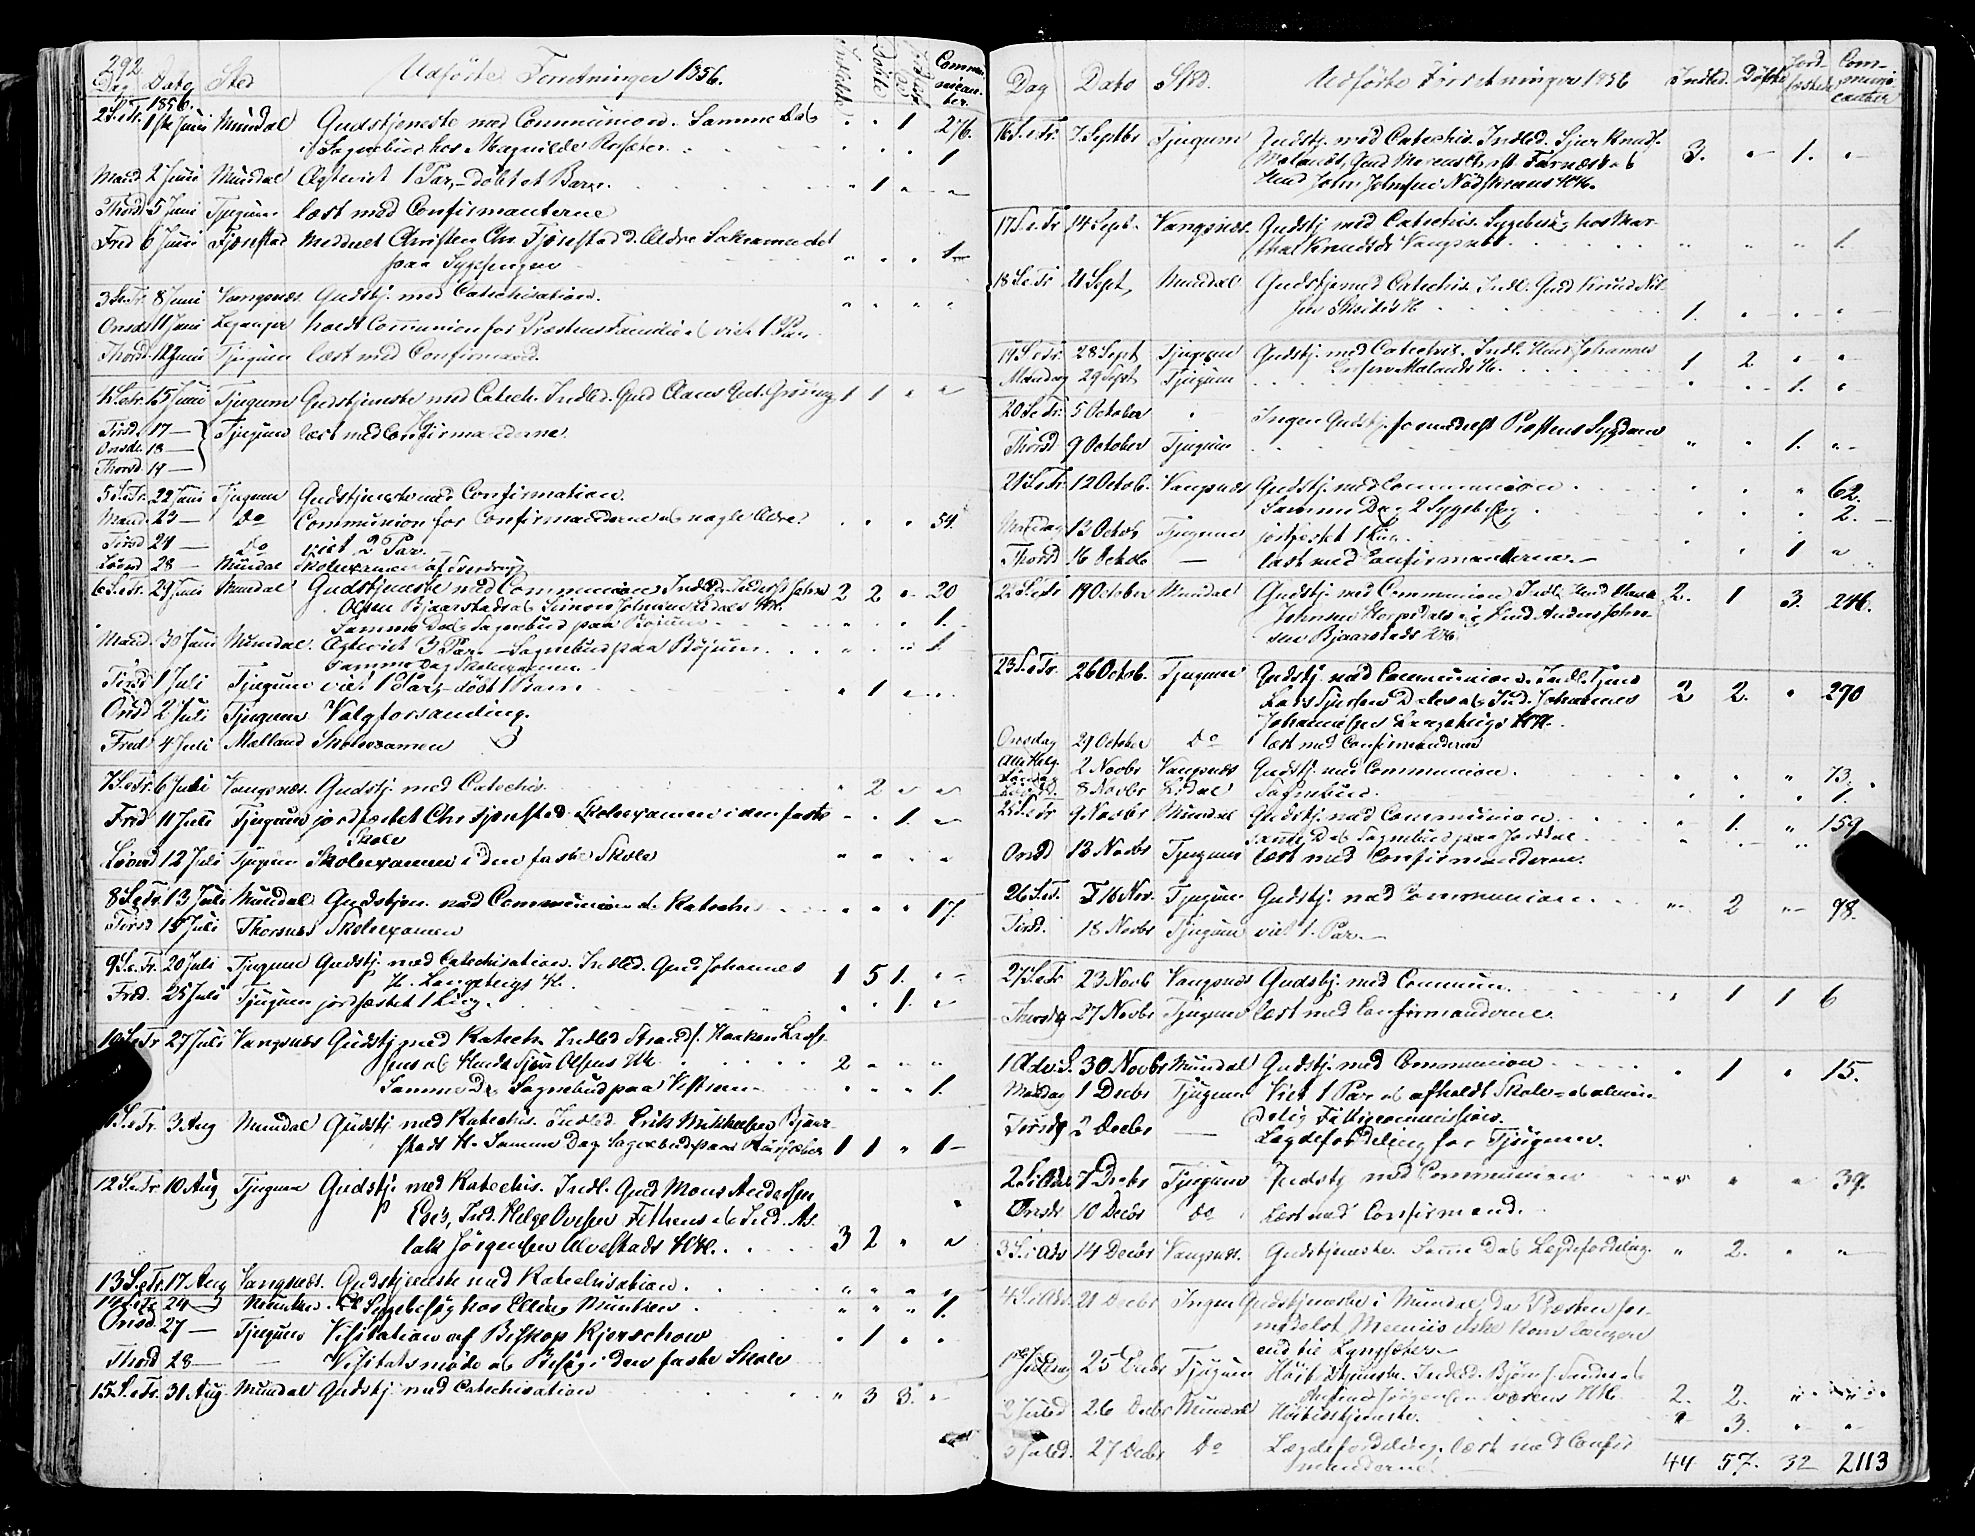 292
Dag Dato Sted Udførte Forretninger 1856. Indled. Døbte Jordfæst. Communicanter.
1856.
2 S.e.Tr. 1ste Juni Mundal Gudstjeneste med Communion. Samme Dag " " 1 276.
Sognebud hos Magnilde 1
Mand. 2 Juni Mundal Ægteviet 1 Par, – døbt et Barn. " 1 " "
Thorsd. 5 Juni Tjugum læst med Confirmanterne
Fred 6 Juni Fjærestad meddeelt Christen Chr. Fjærestad d. Ældre Sakramentet
paa Sygesengen " " " 1
3 S.e.Tr. 8 Juni Vangsnæs Gudstj. med Catechisation. " " " "
Onsd. 11 Juni Leganger holdt Communion for Præstens Familie og viet 1 Par
Thorsd. 12 Juni Tjugum læst med Confirmand.
4 S.e.Tr. 15 Juni Tjugum Gudstjeneste med Catech. Indled. Gmd Claus 1 1 " "
Tirsd. 17 — Tjugum læst med Confirmanderne.
Onsd. 18 —
Thorsd. 19 —
5 S.e.Tr. 22 Juni Tjugum Gudstjeneste med Confirmation.
Mand. 23 — Do Communion for Confirmanderne og nogle Ældre. " " " 54.
Tirsd 24 — Do viet 2 Par.
Løverd 28 — Mundal Skoleexamen
6 S.e.Tr. 29 Juni Mundal Gudstjeneste med Communion Indled. 2 2 " 20
Olsen Bjaarstad og Simon Johnsen
Samme Dag Sognebud paa Bøjum 1.
Mand. 30 Juni Mundal. Ægteviet 3 Par. – Sognebud paa Bøjum 1
samme Dag Skoleexamen.
Tirsd 1 Juli Tjugum viet 1 Par, – døbt 1 Barn " 1 " "
Onsd 2 Juli Tjugum Valgforsamling.
Fred 4 Juli Mælland Skoleexamen
7 S.e.Tr. 6 Juli Vangsnæs. Gudstj. med Catechis. " 2 " "
Fred 11 Juli Tjugum jordfæstet Chr. Fjærestad. Skoleexamen i den faste " " 1. "
Skole
Løverd 12 Juli Tjugum Skoleexamen i den faste Skole " " " "
8 S.e.Tr. 13 Juli Mundal Gudstjen. med Communion og Katechis " " " 17.
Tirsd 15 Juli Thorsnæs Skoleexamen
9 S.e.Tr. 20 Juli Tjugum Gudstj. med Catechisation. Indled. Gmd Johannes 1 5 1. "
H. Langeteigs H.
Fred. 25 Juli Tjugum jordfæstet 1 Liig. " " 1. "
10 S.e.Tr 27 Juli Vangsnæs Gudstj med Katech. Indled Strands. Haaken Lass-
sens og Husmd Sjur Olsens HH. 2 " " "
Samme Dag Sognebud paa " " " 1.
S.e.Tr. 3 Aug Mundal Gudstj med Katechis. Indled. Erik Mikkelsen Bjaar-
stads H. Samme Dag Sognebud paa 1 1 " 1
12 S.e.Tr. 10 Aug Tjugum Gudstj. med Katechis. Indl. Gmd Mons Andersen
Eges, Ind. Helge Ovesen Fetheus og Ind. As-
lak Jørgensen Alvestads HH. 3 2 " "
13 S.e.Tr. 17 Aug Vangsnæs. Gudstjeneste med Katechisation. " " " "
14 S.e.Tr 24 — Sygebesøg hos " " " 1.
Onsd. 27 — Tjugum Visitation af Biskop Kjerschow " 1 " "
Thord 28 — — Visitatsmøde og Besøg i den faste Skole
15 S.e.Tr. 31 Aug. Mundal Gudstj. med Catechisation " 3 3. "
Dag Dato Sted. Udførte Forretninger 1856 Indled. Døbte Jordfæstede Communicanter
16 S.e.Tr. 7 Septbr Tjugum Gudstj. med Catechis. Indled. Sjur Knuds.
Gmd 3. " 1. "
Husmd John Johnsen HH.
17 S.e.Tr 14 Sept. Vangsnæs. Gudstj med Catechis. Sygebesøg hos Mar-
tha Knudsd. Vangsnæs " " " 1.
18 S.e.Tr 21 Sept. Mundal Gudstj med Catechis. Indl. Gmd Knud Nil-
sen H 1. " " "
19 S.e.Tr. 28 Sept Tjugum Gudstj. med Catechis. Indl. Husmd Johannes
H. 1 2 " "
Mandag 29 Sept Tjugum " " 1. "
20 S.e.Tr. 5 October " Ingen Gudstj. formedelst Præstens Sygdom
Thorsd 9 October Tjugum " " 1. "
21 S.e.Tr 12 Octob. Vangsnæs Gudstj. med Communion " " " 62.
Samme Dag 2 Sygebesøg 2.
Mandag 13 Octob Tjugum jordfæstet 1 Liig " " 1 "
Thorsd 16 Octob — læst med Confirmanderne. —
22 S.e.Tr 19 October Mundal Gudstj med Communion Indl. Husmd 2. 1 3. 246.
Johnsen og Husmd Anders John-
sen Bjaarstads HH.
23 S.e.Tr. 26 Octob. Tjugum Gudstj. med Communion. Indl. 2 2. " 270
Lars Sjursen Dales og Ind. Johannes
Johannesen Langeteigs HH.
Onsdag 29 October Do læst med Confirmanderne
Alle Helg. Søndag 2 Novbr Vangsnæs Gudstj. med Communion. " " " 73.
8 Novbr Sognebud. " " " 1.
25 S.e.Tr 9 Novbr Mundal Gudstj. med Communion " 1. " 159
samme Dag Sognebud paa
Onsd 12 Novbr Tjugum læst med Confirmanderne.
26 S.e.T. 16 Nov. Tjugum Gudstj. med Communion. " 2 " 98.
Tirsd. 18 Novbr Tjugum viet 1. Par. —
27 S.e.Tr 23 Novb Vangsnæs Gudstj. med Commun. " 1 1 6
Thorsdg 27 Novbr Tjugum læst med Confirmanderne.
1 Adv. S. 30 Novbr Mundal Gudstj. med Communion " 1 " 15.
Mandag 1 Decbr Tjugum Viet 1 Par og afholdt Skole- og almin-
delig Fattigcommission.
Tirsdg 2 Decbr — Lægdefordeling for Tjugum.
2 S. i Adv 7 Decbr Tjugum Gudstj med Communion " " " 39.
Onsd 10 Decbr Do Læst med Confirmand.
3 S. i Adv 14 Decbr Vangsnæs. Gudstjeneste. Samme Dag Lægdefordeling. " 2. " "
4 S. i Adv. 21 Decbr Ingen Gudstjeneste i Mundal, da Præsten for-
medelst Meenis ikke kom længere
end til
1ste Juledag 25 Decbr Tjugum Høitidstjeneste. Indled.
HH. 2. 2. " "
2 Juled 26 Decbr Mundal Høitidstjeneste. " 3. " "
3 Juled. 27 Decbr Do Lægdefordeling. læst med Confir-
manderne.
44 57. 32 2113